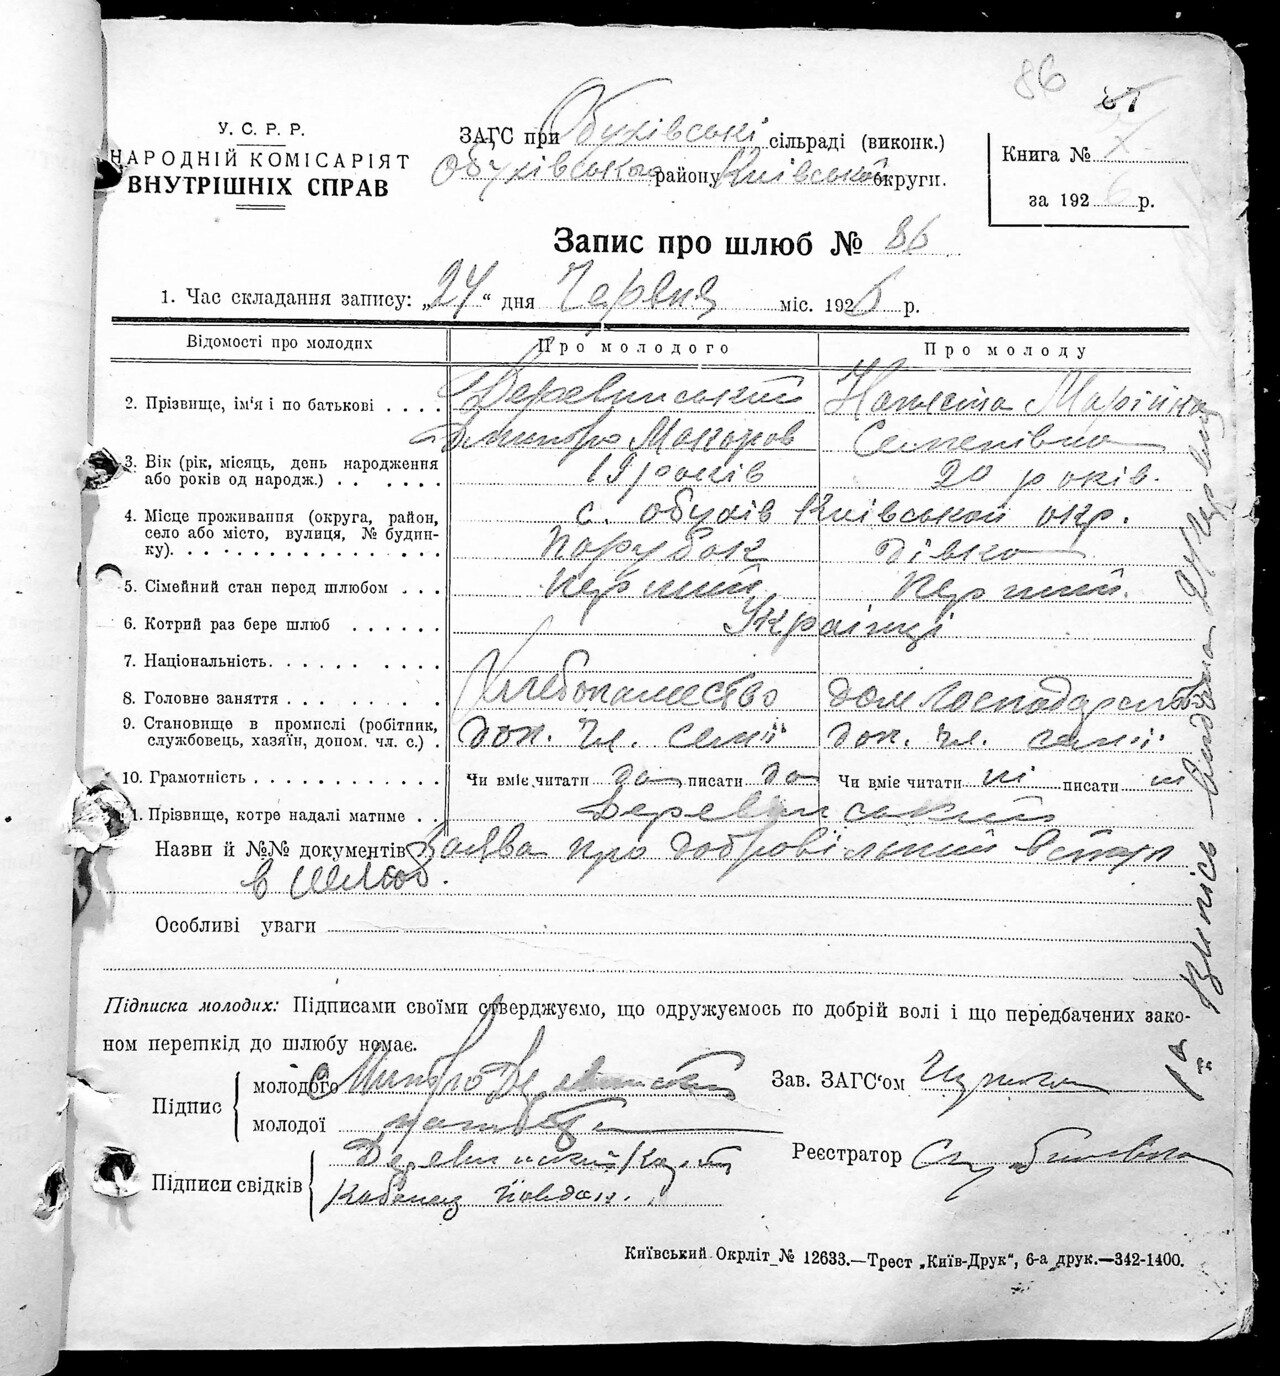 86
87
У. С. Р. Р.
НАРОДНІЙ КОМІСАРІЯТ
ВНУТРІШНІХ СПРАВ
ЗАГС при Обухівські сільраді (виконк.)
Обухівського району Київської округи.
Книга №
за 1926 р.
Запис про шлюб № 86
1. Час складання запису: „24“ дня Червня міс. 1926 р.
Відомості про молодих Про молодого Про молоду
2. Прізвище, ім'я і по батькові Деревинський Марійка
Дмитро Макаров Семенівна
3. Вік (рік, місяць, день народження або років од народж.) 19 років 20 років.
4. Місце проживання (округа, район, село або місто, вулиця, № будинку) с. Обухів Київської окр.
Парубок дівка
5. Сімейний стан перед шлюбом перший перший.
6. Котрий раз бере шлюб Українці
7. Національність
8. Головне заняття Хлебопашество дом господарство
9. Становище в промислі (робітник, службовець, хазяїн, допом. чл. с.) доп. чл. семії доп. чл. семії
10. Грамотність Чи вміє читати да писати да Чи вміє читати ні писати ні
11. Прізвище, котре надалі матиме Деревинський
Назви й №№ документів Заява про добровільний вступ
в шлюб.
Особливі уваги
Підписка молодих: Підписами своїми стверджуємо, що одружуємось по добрій волі і що передбачених зако-
ном перешкід до шлюбу немає.
Підпис
молодого Дмитро Деревинський
молодої
Зав. ЗАГС'ом
Реєстратор
Підписи свідків Деревинський
Київський Окрліт № 12633.—Трест „Київ-Друк“, 6-а друк.—342-1400.
Випись видана 24 Червня